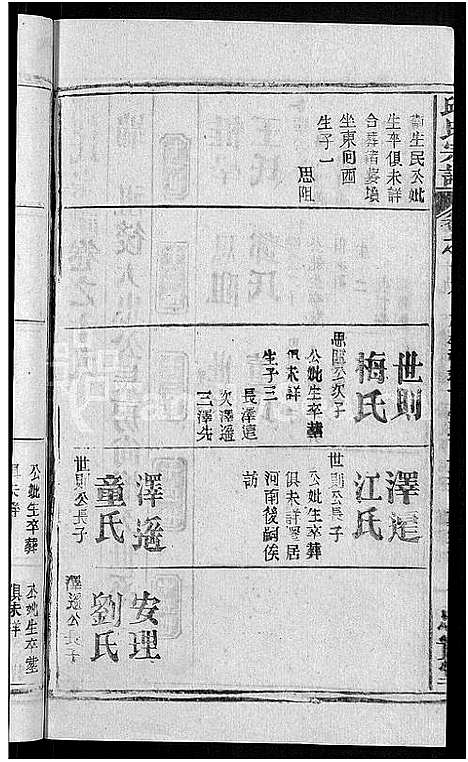 邱氏宗譜
衛生民公妣
生卒俱未詳
合葬豬婆墳
坐東向西
生子一
思聞
世則
梅氏
思聞公次子
公妣生卒葬
俱未詳
生子三
長澤遠
次澤遜
三澤先
澤遠
江氏
世則公長子
公妣生卒葬
俱未詳遷居
河南後嗣俟
訪
澤遜
童氏
世則公長子
安理
劉氏
澤遜公長子
公妣生卒葬
俱未詳
公妣生卒葬
俱未詳